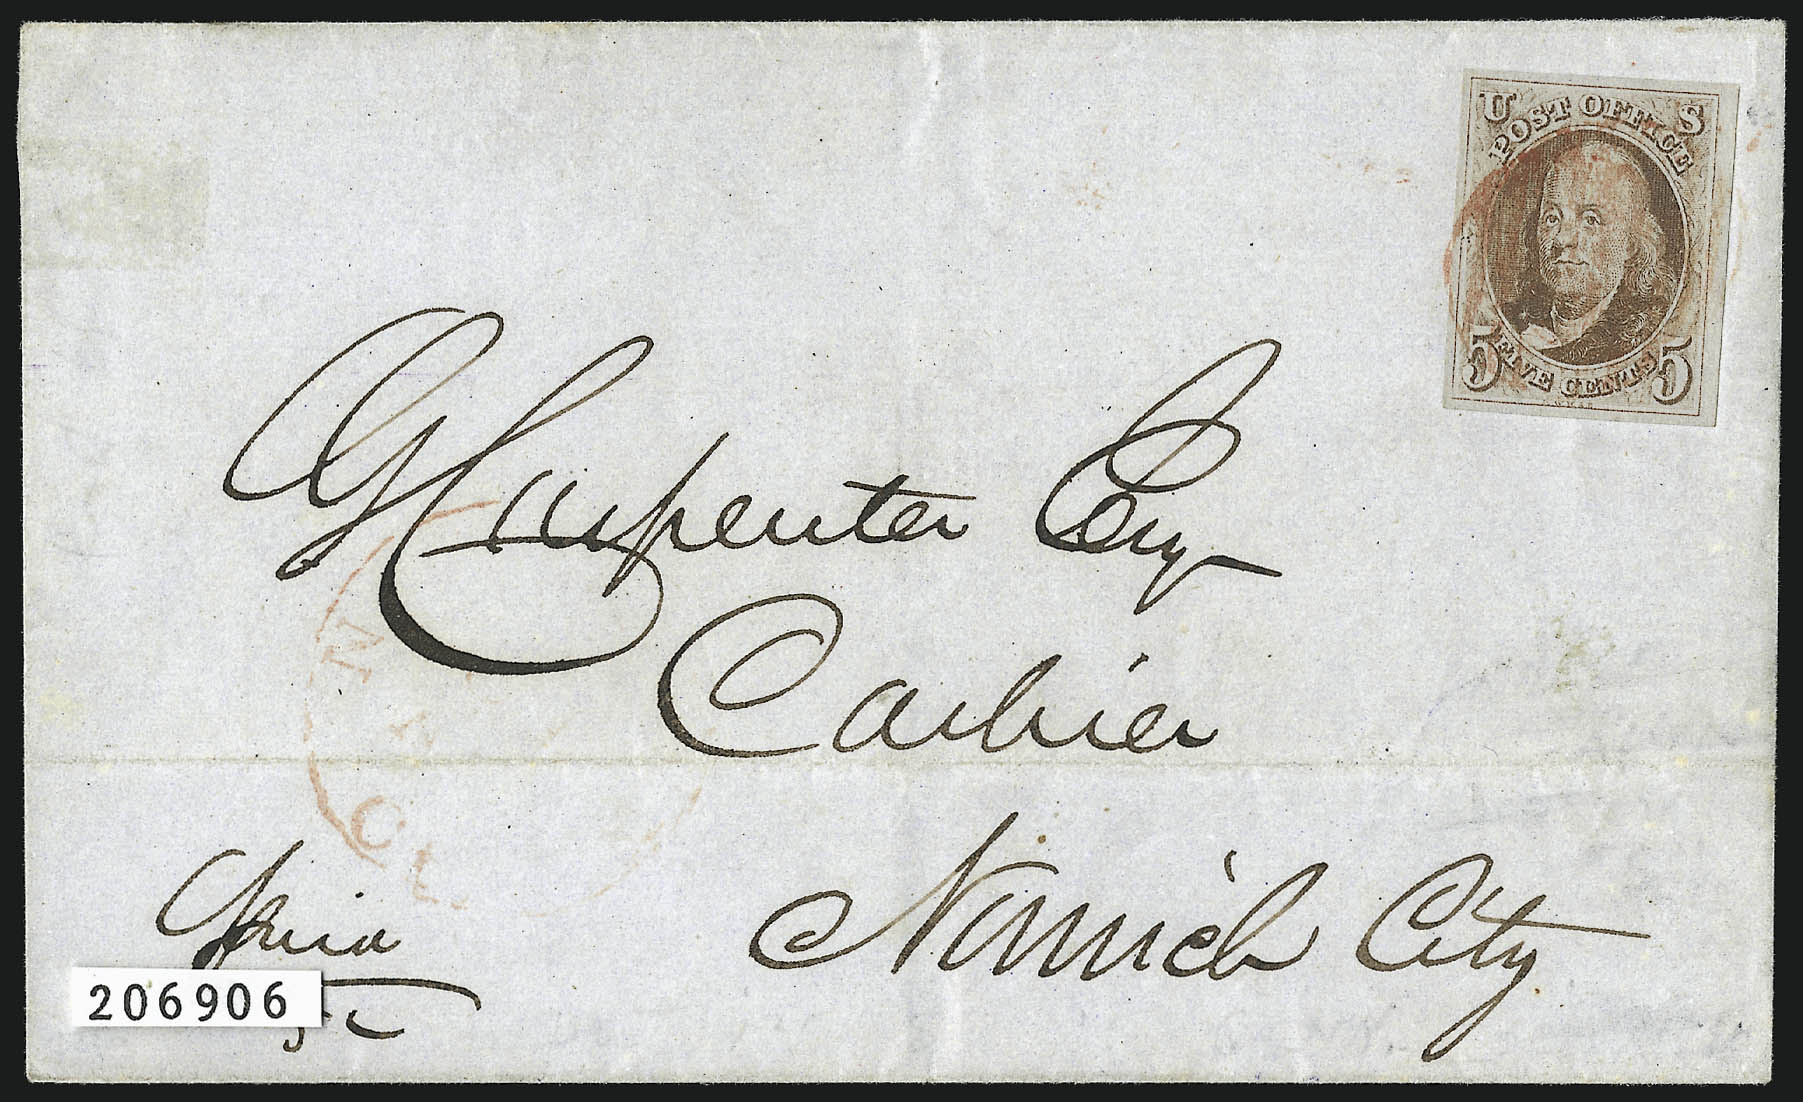 U S
POST OFFICE
5 FIVE CENTS 5
G Carpenter Esq
Cashier
N
CT
Norwich City
206906